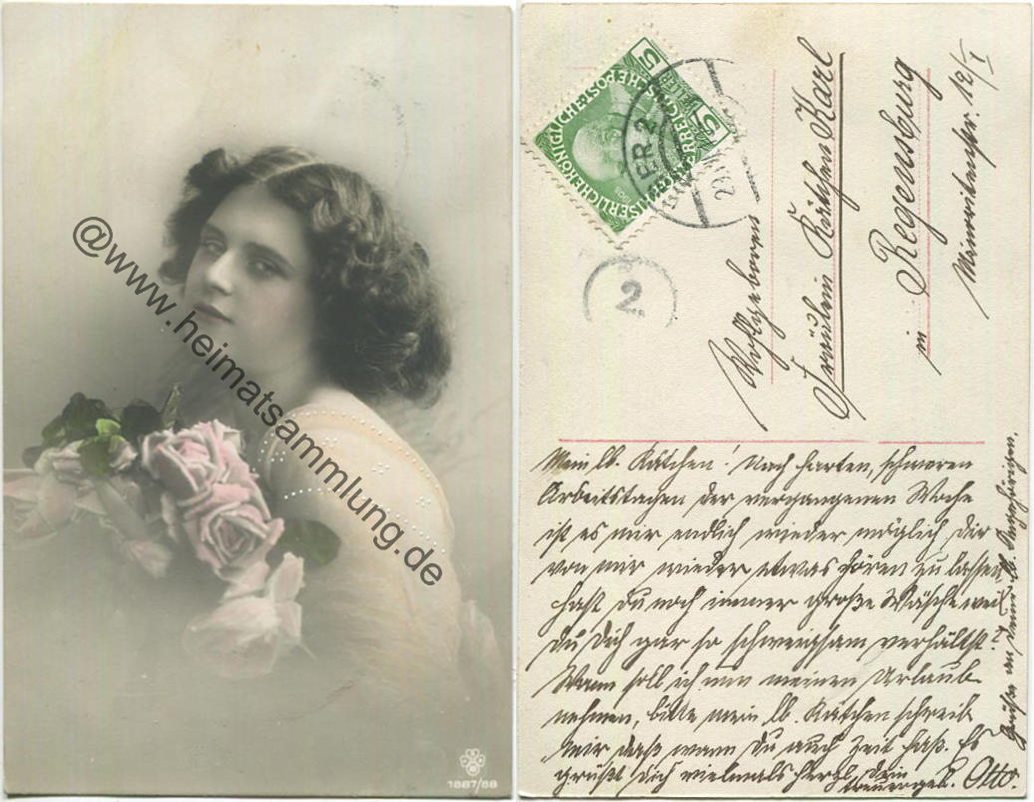 @www.heimatsammlung.de
1887/88
KAISERLICHE KÖNIGLICHE ÖSTERREICHISCHE POST
5 HELLER 5
1908
ER 2
2
Wohlgeboren
Fräulein Käthchen Karl
in Regensburg
12/I
Mein lb. Kätchen! Nach harten, schweren
Arbeitstagen der vergangenen Woche
ist es mir endlich wieder möglich Dir
von mir wieder etwas hören zu lassen
hast Du noch immer große Wäsche weil
Du Dich gar so schweigsam verhältst?
Wann soll ich nun meinen Urlaub
nehmen, bitte mein lb. Kätchen schreib
mir daß wann Du auch Zeit hast. Es
grüßt Dich vielmals herzl. Dein
treuergeb. Otto.
Grüße an Deine lb. Angehörigen.